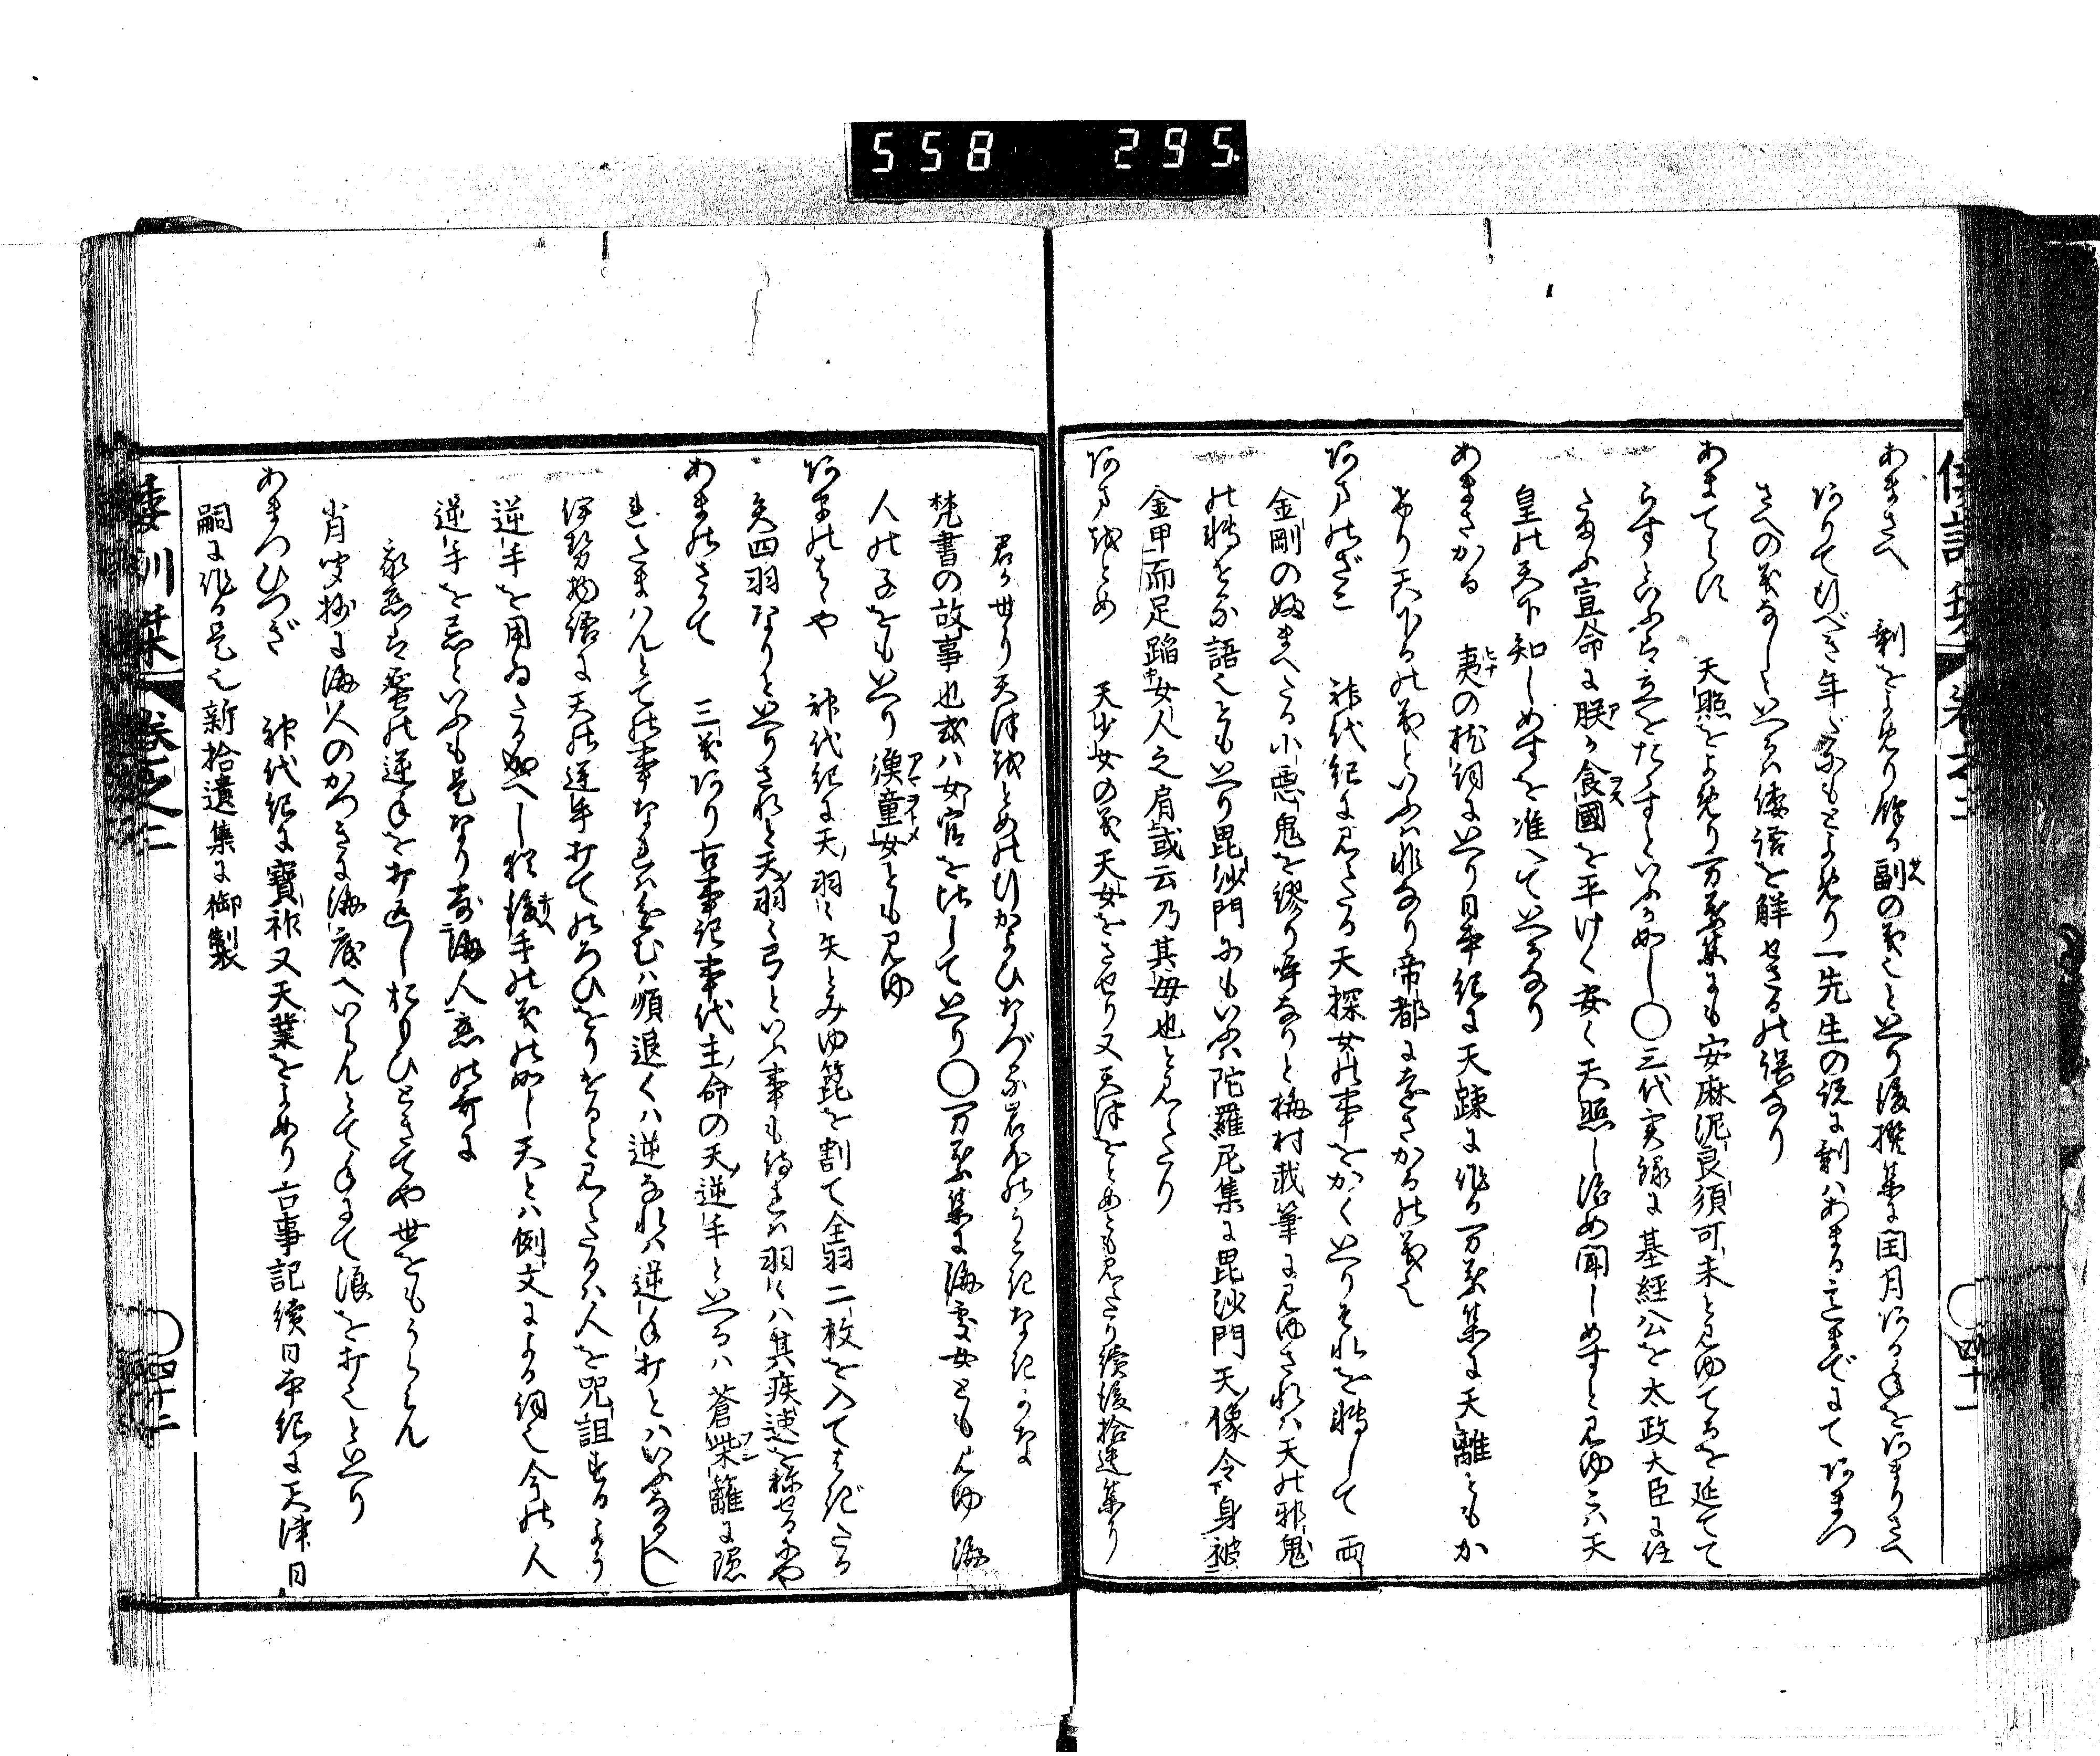 558 295
あまさへ 剰をよめり餘り副の義也といへり後撰集に閏月ある年をあまりさへ
ありて行べき年だにもとよめり一先生の説に剰はあまる意まではにてあまつ
さへの義なしといへるは倭語を解せさるの誤なり
あまてらす 天照をよめり万葉集にも安麻泥良須可未と見ゆてるを延てて
らすといふは立をたゝすといふか如し〇三代実録に基經公を太政大臣に任
たまふ宣命に朕か食國を平けく安く天照し治め聞しめすと見ゆこは天
皇の天下知しめすを准へていへるなり
あまさかる 夷の枕詞にいへり日本紀に天疎に作り万葉集に天離ともか
けり天下るの義といふは非なり帝都に遠さかるの義也
あまのざこ 神代紀に見えたる天探女の事をかくいへりそれを轉して両
金剛の如まへたる小悪鬼を繆り呼なりと梅村載筆に見ゆされは天の邪鬼
の轉せる語也ともいへり毘沙門にもいふは陀羅尼集に毘沙門天像令身被
金甲而足蹈女人之肩或云乃其母也と見えたり
あまをとめ 天少女の義天女をさせり又天津をとめとも見えたり續後拾遺集り
君か世り天津をとめの行かよひなづる岩ほのうこきなきかな
梵書の故事也或ハ女官を比していへり〇万葉集に海處女とも見ゆ 海
人の子をもいへり漁童女とも見ゆ
あまのはゝや 神代紀に天羽々矢とみゆ箆を割て全羽二枚を入てはぎたる
矢四羽なりといへりされと天羽々弓といふ事も侍れは羽々ハ其疾速を称せるにや
あまのさかて 三義あり古事記事代主命の天逆手といへるハ蒼柴籬に隠
れたまハんとての事なれハ進むハ順退くハ逆なれハ逆手打とハいふなるへし
伊勢物語に天の逆手打てのろひをりけると見えたるハ人を咒詛するよう
逆手を用ゐたる如へし移後手の義の如し天とハ例文による詞也今の人
逆手を忌といふも是なり寄海人恋の哥に
我恋は蜑の逆手を打返しおもひときてや世をもうらみん
肖聞抄に海人のかつきに海底へいらんとて手にて浪を打也といへり
あまつひつぎ 神代紀に寶祚又天業をよめり古事記續日本紀に天津日
嗣に作る是也新拾遺集に御製
倭訓栞 卷之二 四十二